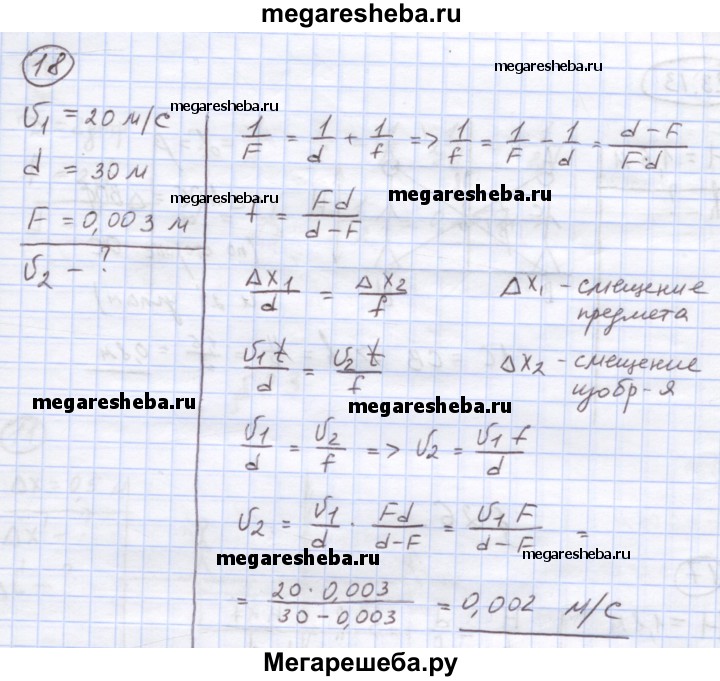 megaresheba.ru
18
megaresheba.ru
megaresheba.ru
υ₁ = 20 м/с
d = 30 м
F = 0,003 м
υ₂ - ?
1/F = 1/d + 1/f => 1/f = 1/F - 1/d = (d-F)/(F·d)
megaresheba.ru
megaresheba.ru
f = Fd/(d-F)
Δx₁/d = Δx₂/f
Δx₁ - смещение
предмета
υ₁t/d = υ₂t/f
Δx₂ - смещение
изобр-я
megaresheba.ru
megaresheba.ru
υ₁/d = υ₂/f => υ₂ = υ₁f/d
υ₂ = υ₁/d · Fd/(d-F) = υ₁F/(d-F) =
megaresheba.ru
megaresheba.ru
= (20·0,003)/(30-0,003) = 0,002 м/с
Мегарешеба.ру